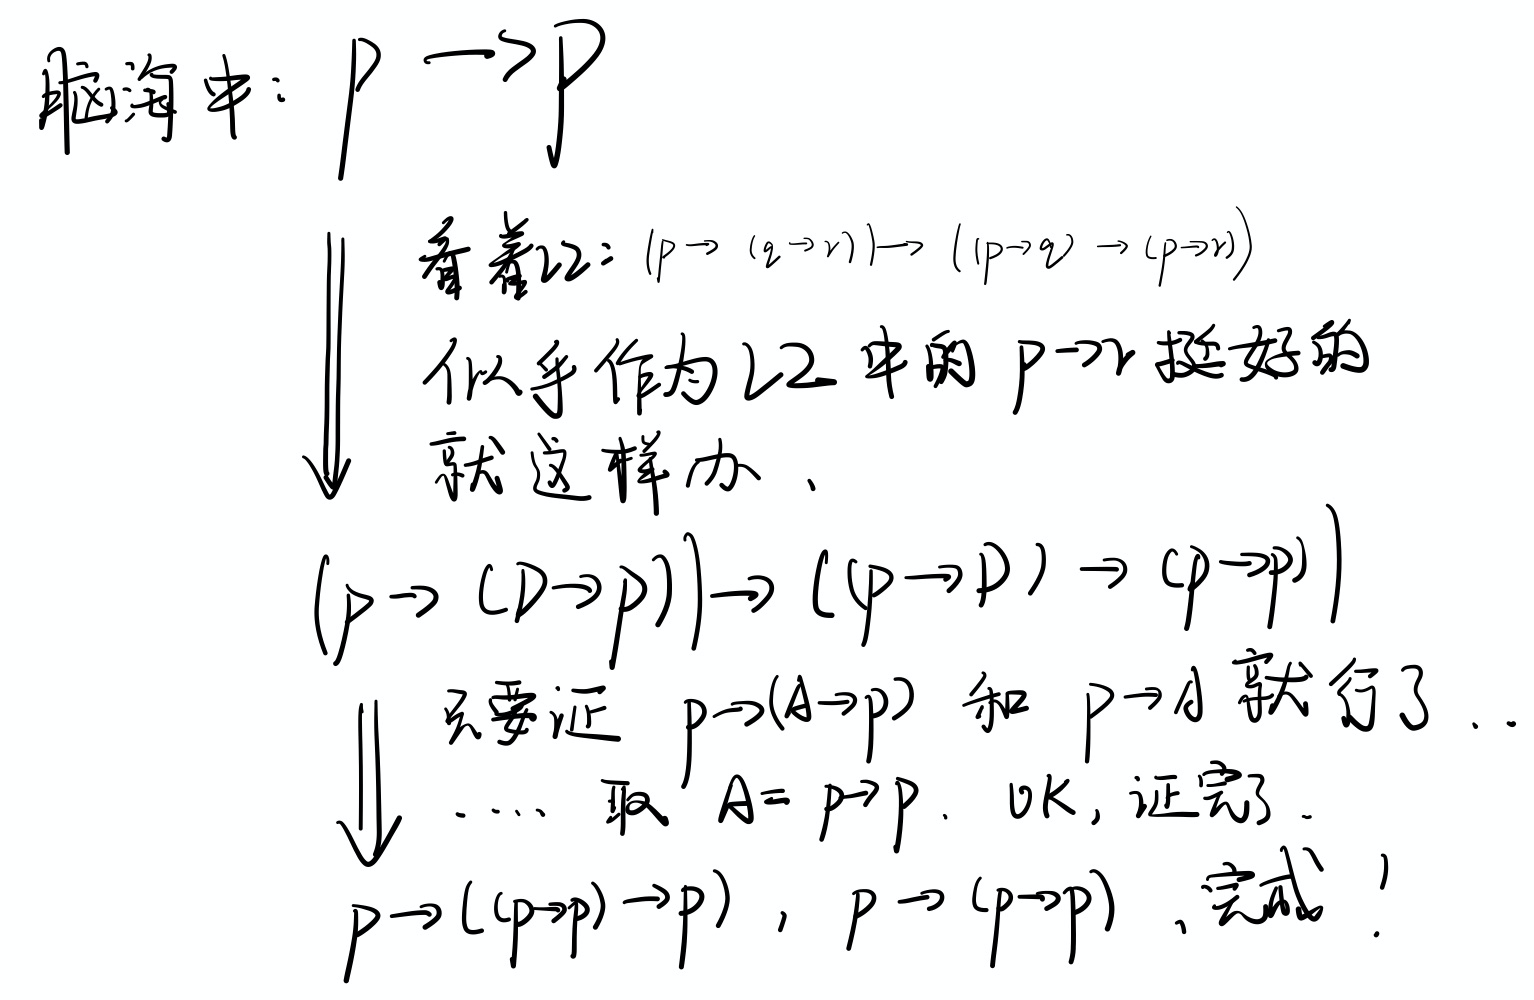 脑海中: p → p
看着L2: (p → (q → r)) → ((p → q) → (p → r))
似乎作为L2中的 p→r 挺好的
就这样办、
(p → (p → p)) → ((p → p) → (p → p))
只要证 p→(A→p) 和 p→A 就行了...
.... 取 A = p→p. OK, 证完了.
p → ((p→p) → p), p → (p→p)、完成!